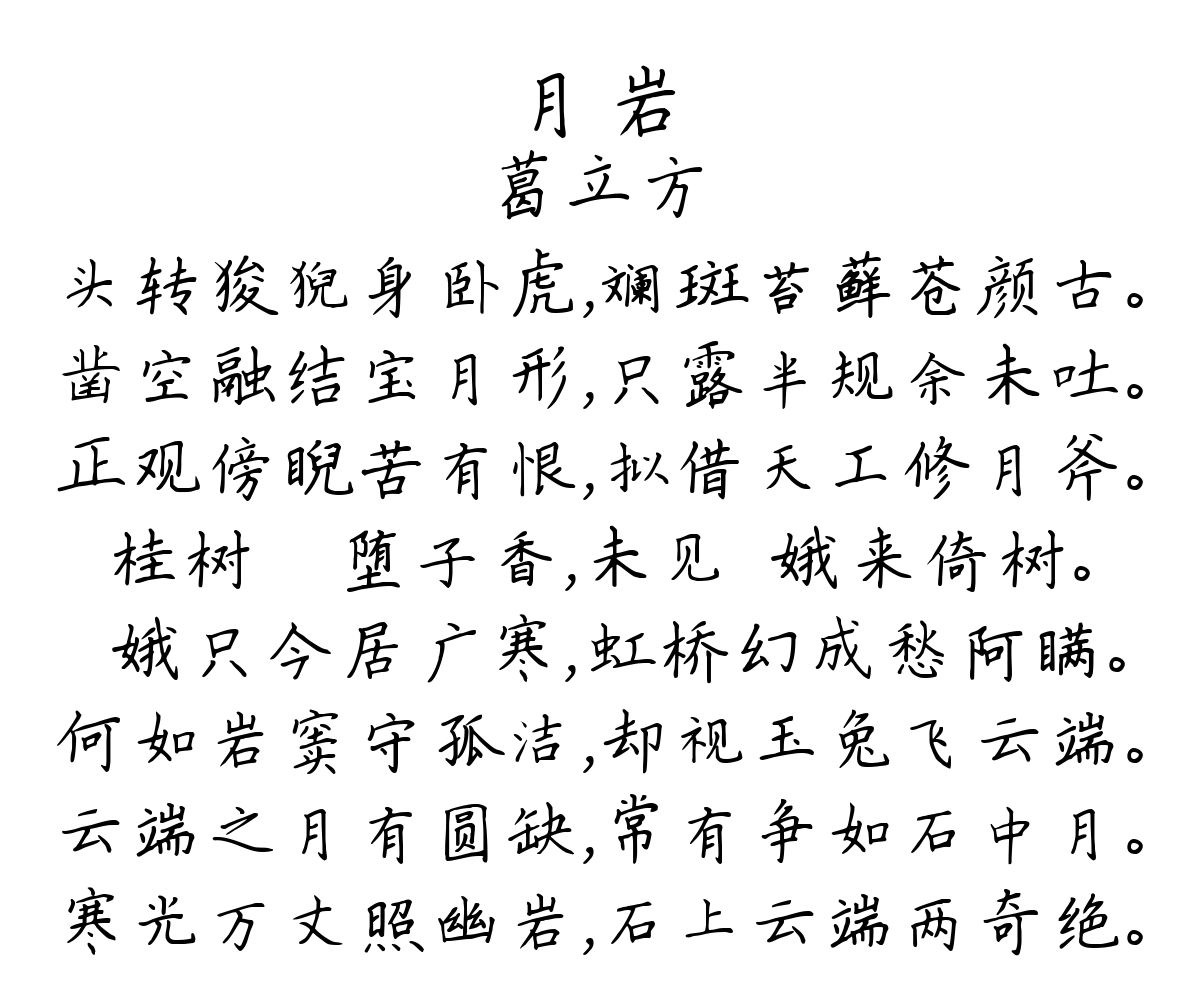 月岩
葛立方
头转狻猊身卧虎,斓斑苔藓苍颜古。
凿空融结宝月形,只露半规余未吐。
正观傍睨苦有恨,拟借天工修月斧。
桂树 堕子香,未见 娥来倚树。
娥只今居广寒,虹桥幻成愁阿瞒。
何如岩窦守孤洁,却视玉兔飞云端。
云端之月有圆缺,常有争如石中月。
寒光万丈照幽岩,石上云端两奇绝。